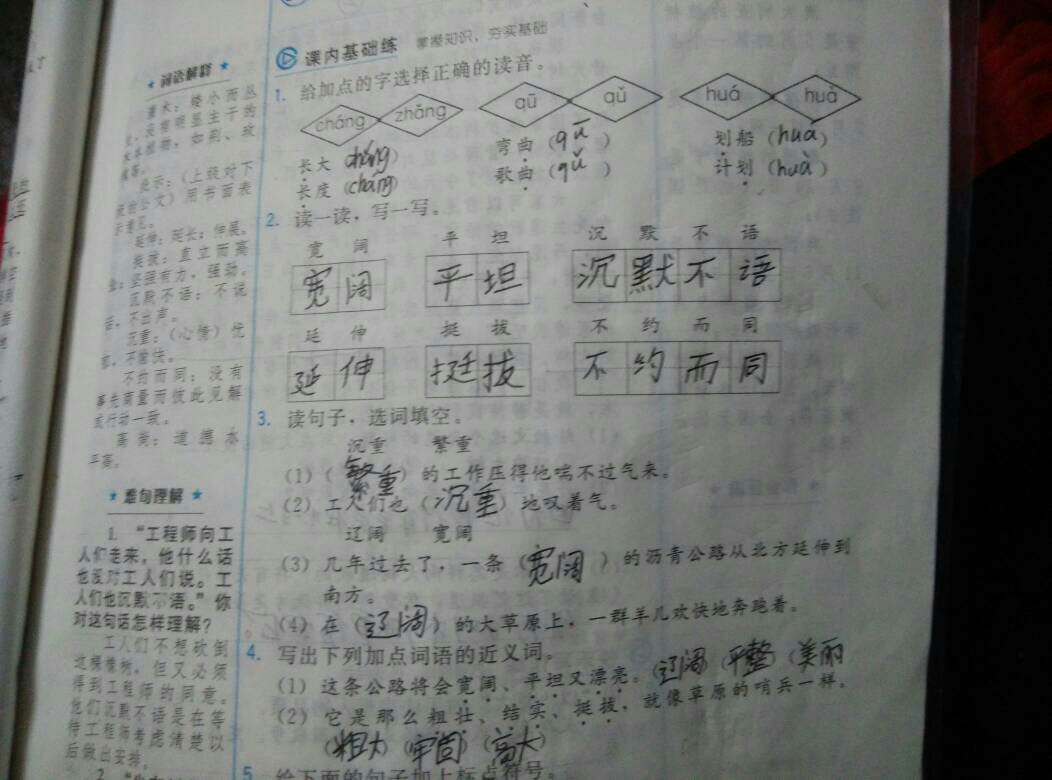 课内基础练 掌握知识，夯实基础
1. 给加点的字选择正确的读音。
cháng zhǎng qū qǔ huá huà
长大（zhǎng） 弯曲（qū） 划船（huá）
长度（cháng） 歌曲（qǔ） 计划（huà）
2. 读一读，写一写。
宽阔 平坦 沉默不语
宽阔 平坦 沉默不语
延伸 挺拔 不约而同
延伸 挺拔 不约而同
3. 读句子，选词填空。
沉重 繁重
（1）（繁重）的工作压得他喘不过气来。
（2）工人们也（沉重）地叹着气。
辽阔 宽阔
（3）几年过去了，一条（宽阔）的沥青公路从北方延伸到
南方。
（4）在（辽阔）的大草原上，一群羊儿欢快地奔跑着。
4. 写出下列加点词语的近义词。
（1）这条公路将会宽阔、平坦又漂亮。（辽阔）（平整）（美丽
（2）它是那么粗壮、结实、挺拔，就像草原的哨兵一样。
（粗大）（牢固）（高大）
5. 给下面的句子加上标点符号。
★词语解释★
灌木：矮小而丛
生，没有明显主干的
木本植物，如荆、玫
瑰等。
批示：（上级对下
级的公文）用书面表
示意见。
延伸：延长；伸展。
挺拔：直立而高
耸；坚强有力，强劲。
沉默不语：不说
话，不出声。
沉重：（心情）忧
郁，不愉快。
不约而同：没有
事先商量而彼此见解
或行动一致。
高尚：道德水
平高。
★难句理解★
1. “工程师向工
人们走来，他什么话
也没对工人们说。工
人们也沉默不语。”你
对这句话怎样理解？
工人们不想砍倒
这棵橡树，但又必须
得到工程师的同意。
他们沉默不语是在等
待工程师考虑清楚以
后做出安排。